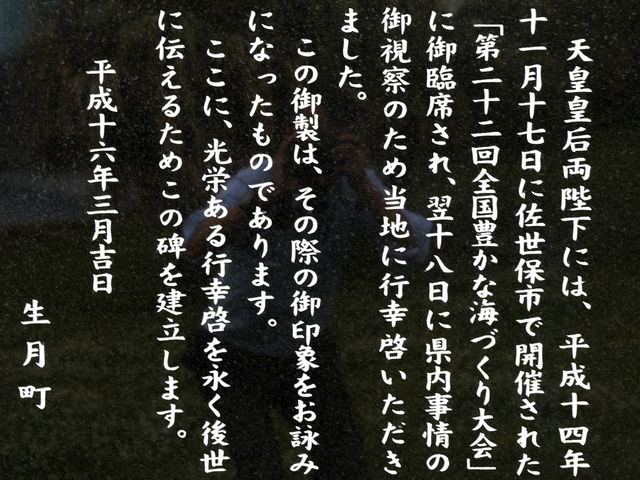 天皇皇后両陛下には、平成十四年
十一月十七日に佐世保市で開催された
「第二十二回全国豊かな海づくり大会」
に御臨席され、翌十八日に県内事情の
御視察のため当地に行幸啓いただき
ました。
この御製は、その際の御印象をお詠み
になったものであります。
ここに、光栄ある行幸啓を永く後世
に伝えるためこの碑を建立します。
平成十六年三月吉日
生月町